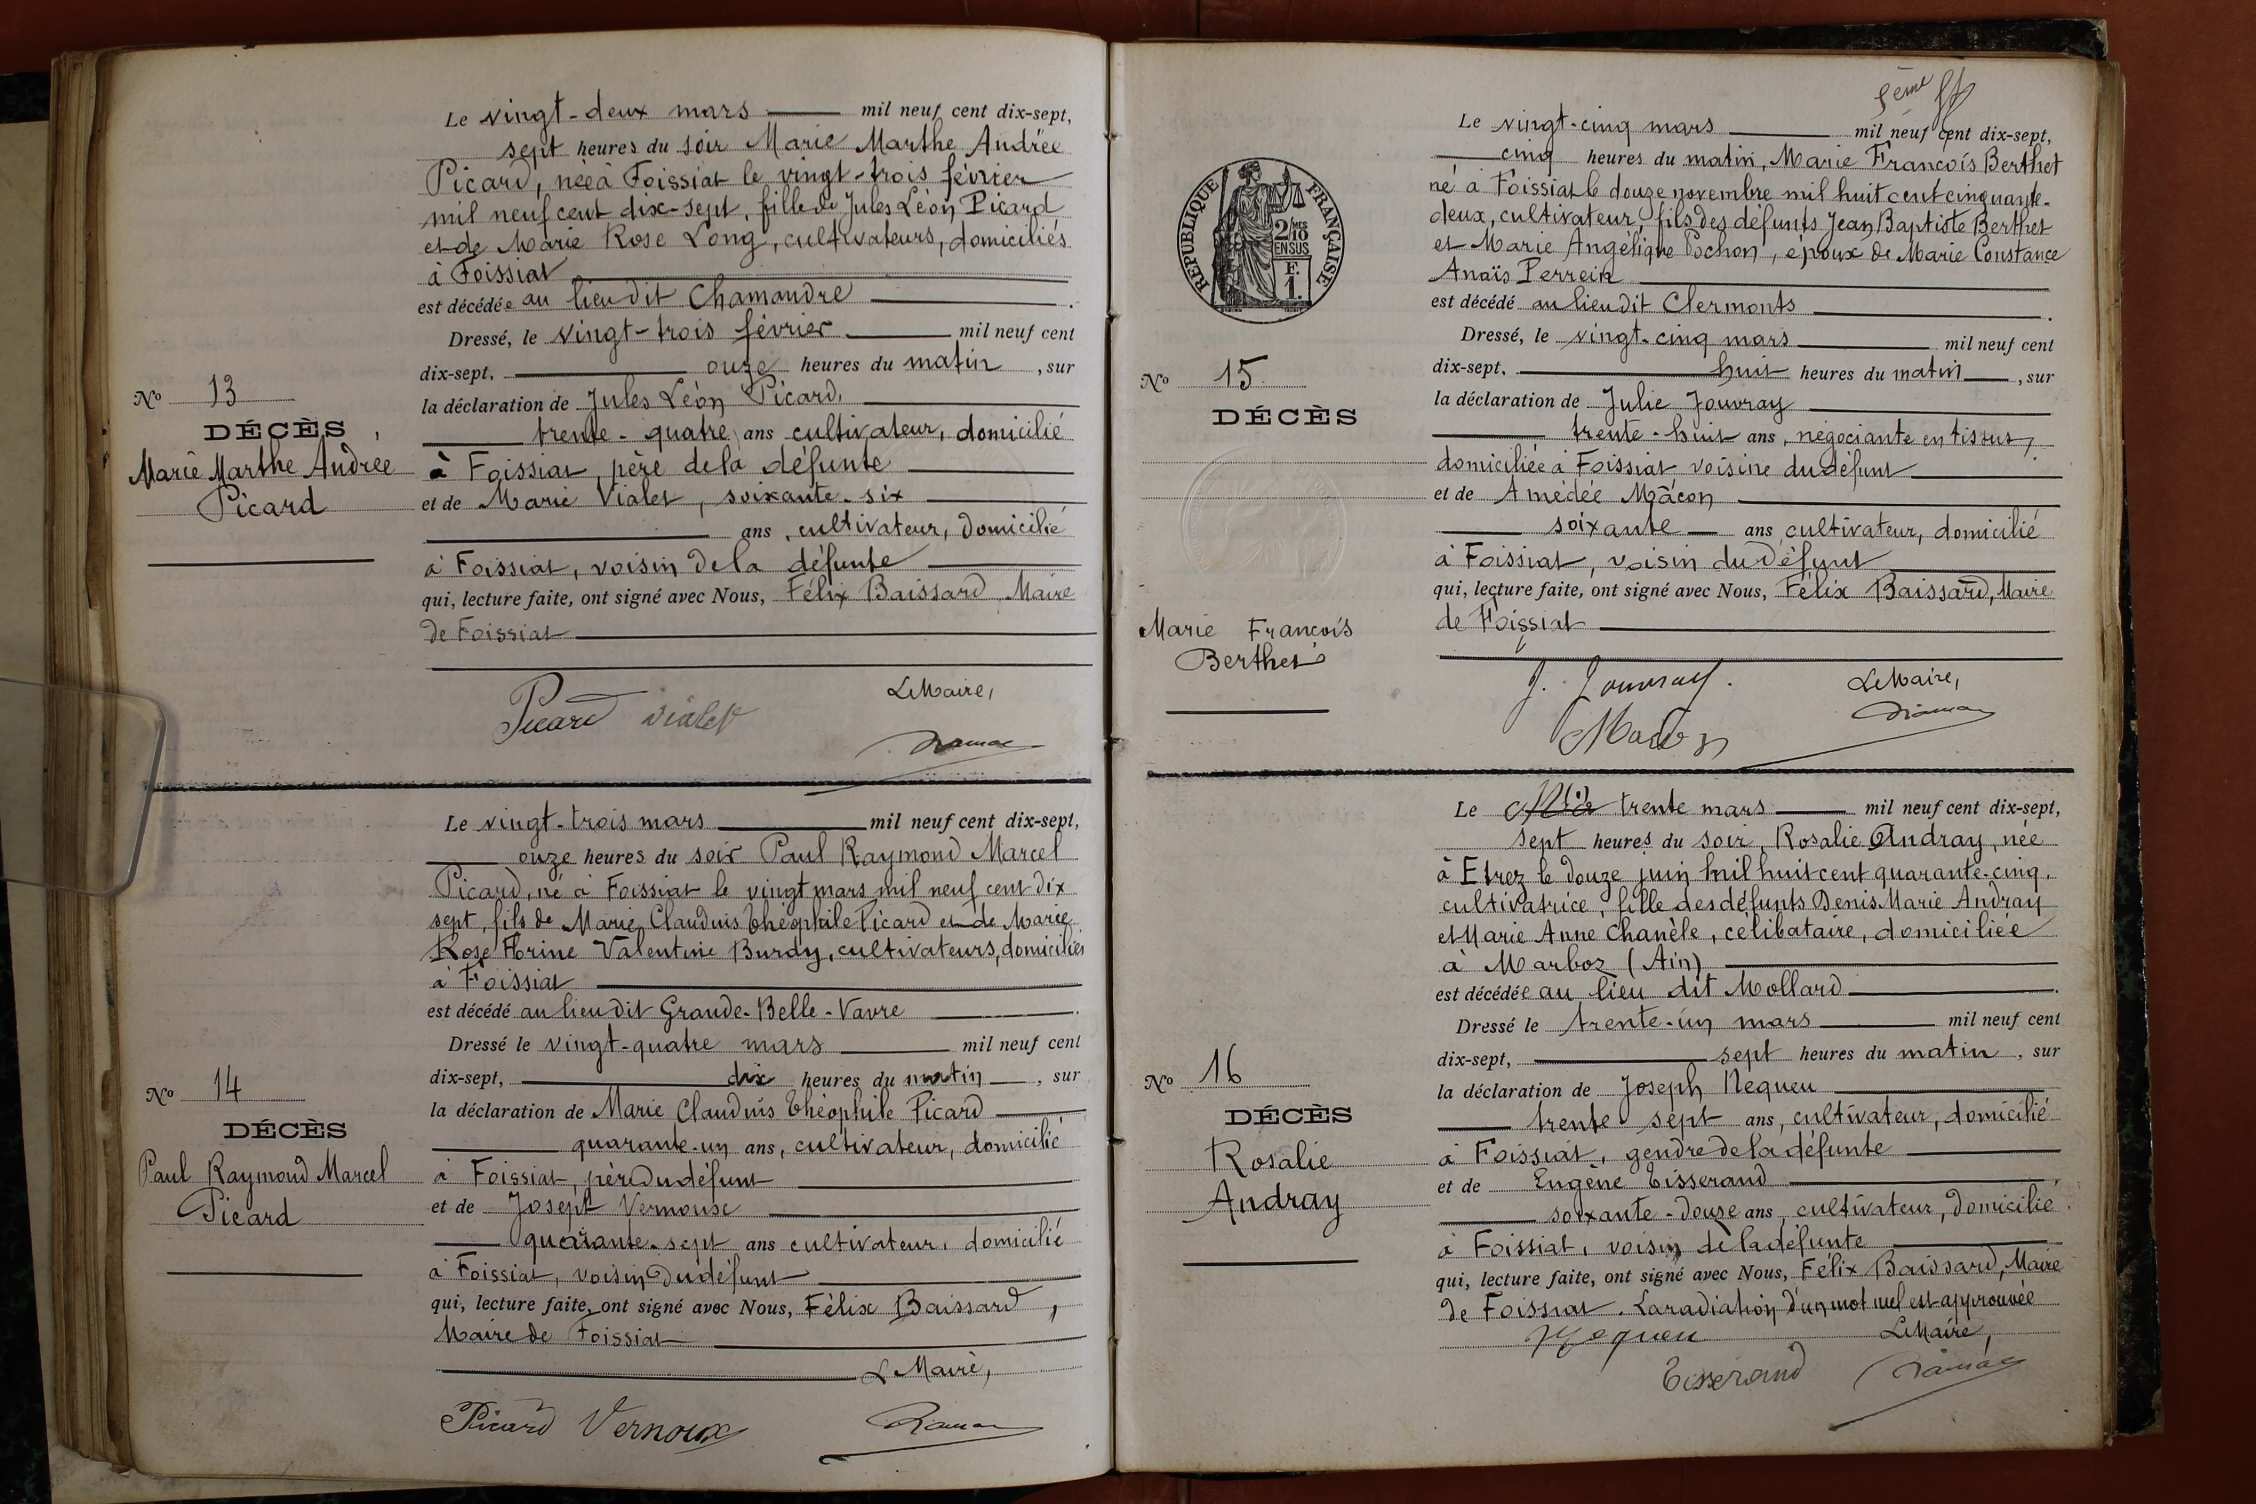 Le vingt-deux mars mil neuf cent dix-sept,
sept heures du soir Marie Marthe Andrée
Picard, née à Foissiat le vingt-trois février
mil neuf cent dix-sept, fille de Jules Léon Picard
et de Marie Rose Long, cultivateurs, domiciliés
à Foissiat
est décédée au lieu dit Chamandre
Dressé, le vingt-trois février mil neuf cent
dix-sept, onze heures du matin, sur
la déclaration de Jules Léon Picard,
trente-quatre ans cultivateur, domicilié
à Foissiat, père de la défunte
et de Marie Vialet, soixante-six
ans, cultivateur, domicilié
à Foissiat, voisin de la défunte
qui, lecture faite, ont signé avec Nous, Félix Baissard, Maire
de Foissiat
Le Maire,
Picard Vialet
No 13
DÉCÈS
Marie Marthe Andrée
Picard
Le vingt-trois mars mil neuf cent dix-sept,
onze heures du soir Paul Raymond Marcel
Picard, né à Foissiat le vingt mars mil neuf cent dix
sept, fils de Marie Claudius Théophile Picard et de Marie
Rose Valentine Burdy, cultivateurs, domiciliés
à Foissiat
est décédé au lieu dit Grande-Belle-Vavre
Dressé le vingt-quatre mars mil neuf cent
dix-sept, dix heures du matin, sur
la déclaration de Marie Claudius Théophile Picard
quarante-un ans, cultivateur, domicilié
à Foissiat, père du défunt
et de Joseph Vernoux
quarante-sept ans cultivateur, domicilié
à Foissiat, voisin du défunt
qui, lecture faite, ont signé avec Nous, Félix Baissard,
Maire de Foissiat
Le Maire,
Picard Vernoux
No 14
DÉCÈS
Paul Raymond Marcel
Picard
5ème
Le vingt-cinq mars mil neuf cent dix-sept,
cinq heures du matin, Marie François Berthet
né à Foissiat le douze novembre mil huit cent cinquante-
deux, cultivateur, fils des défunts Jean Baptiste Berthet
et Marie Angélique Pochon, époux de Marie Constance
Anaïs Perrein
est décédé au lieu dit Clermonts
Dressé, le vingt-cinq mars mil neuf cent
dix-sept, huit heures du matin, sur
la déclaration de Julie Jouvray
trente-huit ans, négociante en tissus,
domiciliée à Foissiat voisine du défunt
et de Amédée Mâcon
soixante ans cultivateur, domicilié
à Foissiat, voisin du défunt
qui, lecture faite, ont signé avec Nous, Félix Baissard, Maire
de Foissiat
J. Jouvray.
Le Maire,
Macon
RÉPUBLIQUE FRANÇAISE
2/10 MES
EN SUS
F.
1.
No 15
DÉCÈS
Marie François
Berthet
Le trente mars mil neuf cent dix-sept,
sept heures du soir, Rosalie Andray, née
à Etrez le douze juin mil huit cent quarante-cinq,
cultivatrice, fille des défunts Denis Marie Andray
et Marie Anne Chanèle, célibataire, domiciliée
à Marboz (Ain)
est décédée au lieu dit Mollard
Dressé le trente-un mars mil neuf cent
dix-sept, sept heures du matin, sur
la déclaration de Joseph Nequeu
trente sept ans, cultivateur, domicilié
à Foissiat, gendre de la défunte
et de Eugène Tisserand
soixante-douze ans, cultivateur, domicilié
à Foissiat, voisin de la défunte
qui, lecture faite, ont signé avec Nous, Félix Baissard, Maire
de Foissiat. La radiation d'un mot nul est approuvée
Nequeu Le Maire,
Tisserand
No 16
DÉCÈS
Rosalie
Andray